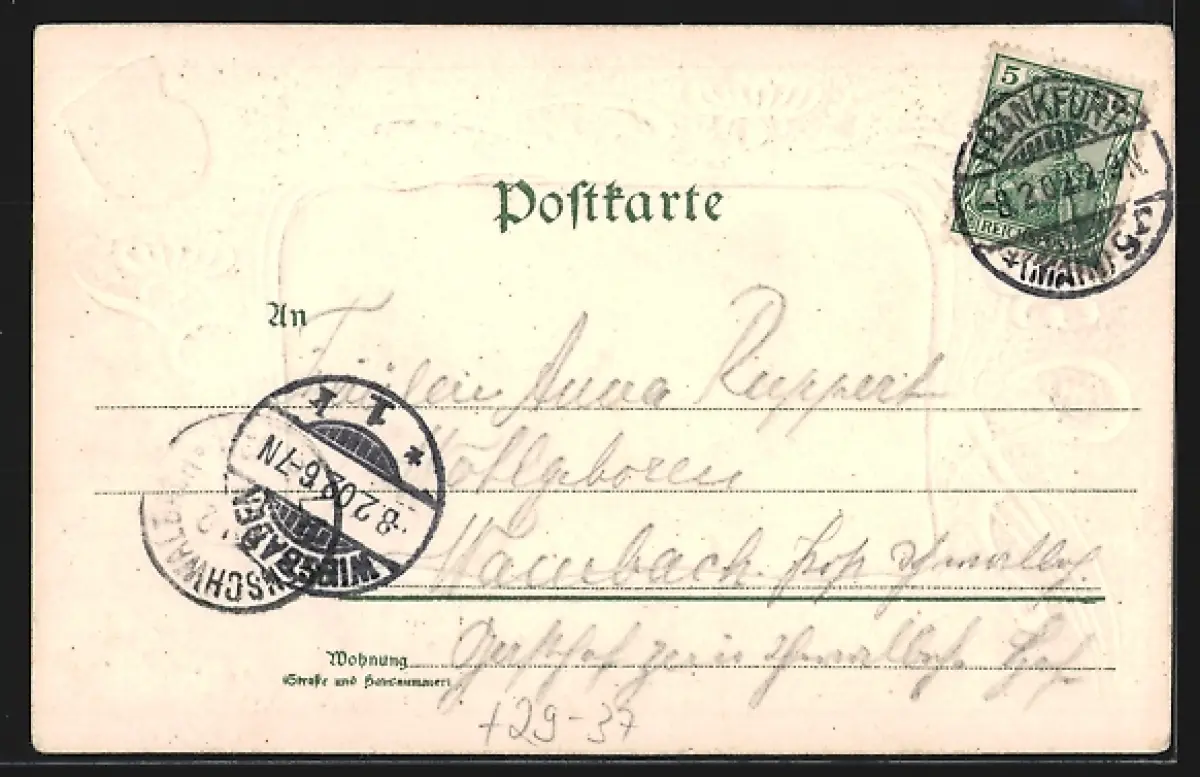 5
FRANKFURT
8.2.02.2-3N.
*(MAIN) 9
REICHSPOST
Postkarte
An
Fräulein Anna Ruppert
Wohlgeboren
Wambach
1
*
8.2.02.6-7N
WIESBADEN
SCHWALBACH
Wohnung
(Straße und Hausnummer)
Gasthof zum
+29-37